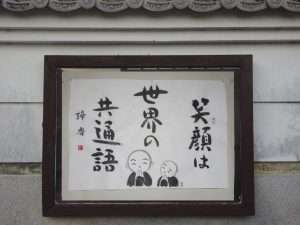 笑顔は
世界の
共通語